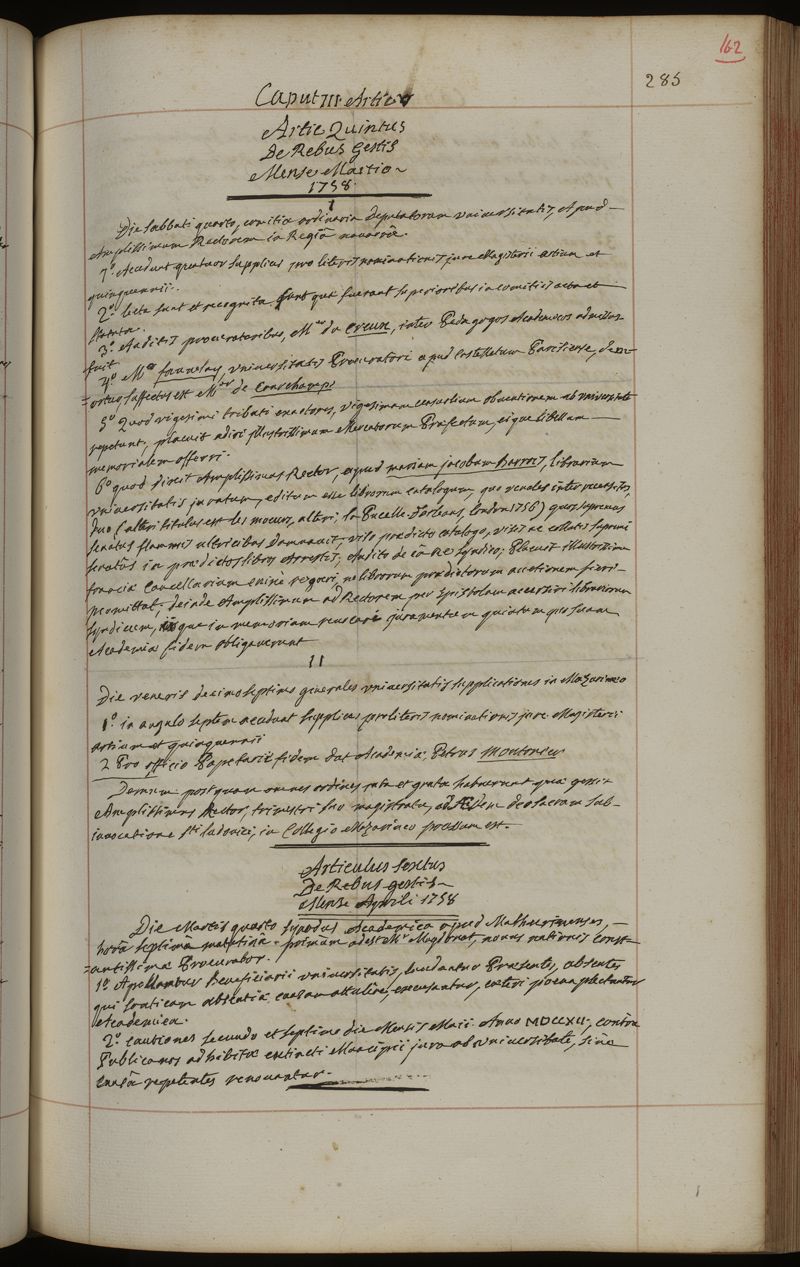 162
285
Caput III Artic V
Artic Quintus
De Rebus Gestis
Mense Martio
1758.
I
Die sabbati quarto, comitia ordinaria deputatorum universitatis, apud
Amplissimum Rectorem in Regiâ navarrâ.
1.° Accedunt quatuor supplices pro litteris nominationis, jure Magisterii artium et
quinquennii.
2.° lecta sunt et recognita quae fuerant superioribus in comitiis acta et
statuta.
3.° Auditis procuratoribus, M. du Creux, inter Pedagogos Academicos admissus
fuit
4.° M. universitatis Procuratori apud Castelletum Parisiense,
suffectus est M. de
5.° Quod vigesimi tributi exactores, vigesimam ab universitate
repetunt, placuit adiri illustrissimum Mercatorum Praefectum, eique libellum
memorialem offerri.
6.° quod dixit Amplissimus Rector, apud mariam jacobam Barrois, librariam
universitatis juratam, editum esse librorum catalogum, quo venales inter recensitos,
duo (alteri titulus est les moeurs, alteri, la Pucelle d'orleans, london 1756) quos supremus
senatus flammis ultricibus damnavit, viso praedicto catalogo, visis ac collatis supremi
senatûs in praedictos libros Arrestis, Audito de eâ re syndico; Placuit illustrissimum
franciae Cancellarium enixe rogari, ne librorum praedictorum auctionem fieri
permittat; deinde Amplissimum ad Rectorem per Epistolam accersiri librariorum
syndicum, in memoriam revocare juramentum quo suam
Academiae fidem obligaverunt
II
Die veneris decimo septimo generales universitatis supplicationes in Mazarinaeo
1.° in angulo septem accedunt supplices pro litteris nominationis jure Magisterii
artium et quinquennii
2 Pro officio Papetarii fidem dat Academiae Petrus Montonceu
Demum postquam omnes ordines rata et grata habuerunt quae gessit
Amplissimus Rector, trimestri suo magistratu, ad Ædem deo sacram sub
invocatione Sti ludovici, in Collegio Mazarinaeo processum est.
Articulus sextus
De Rebus gestis
Mense Aprili 1758
Die Martis quarto synodus Academica apud Mathurinenses,
horâ septimâ matutinâ. primum adest M. Magdonat, novus nationis const=
=antissimae Procurator.
1.° Apellantur Beneficiarii universitatis, laudantur Praesentes, absentes
qui sonticam absentiae causam attulere, excusantur, caeteri poena plectuntur
Academica.
2.° cautiones secundo et septimo die Mensis Maii Anno MDCCXLI, contra
Publicanos adhibitae extincti Mancipii jura ab universitate, sine
causâ repetentes renovantur.